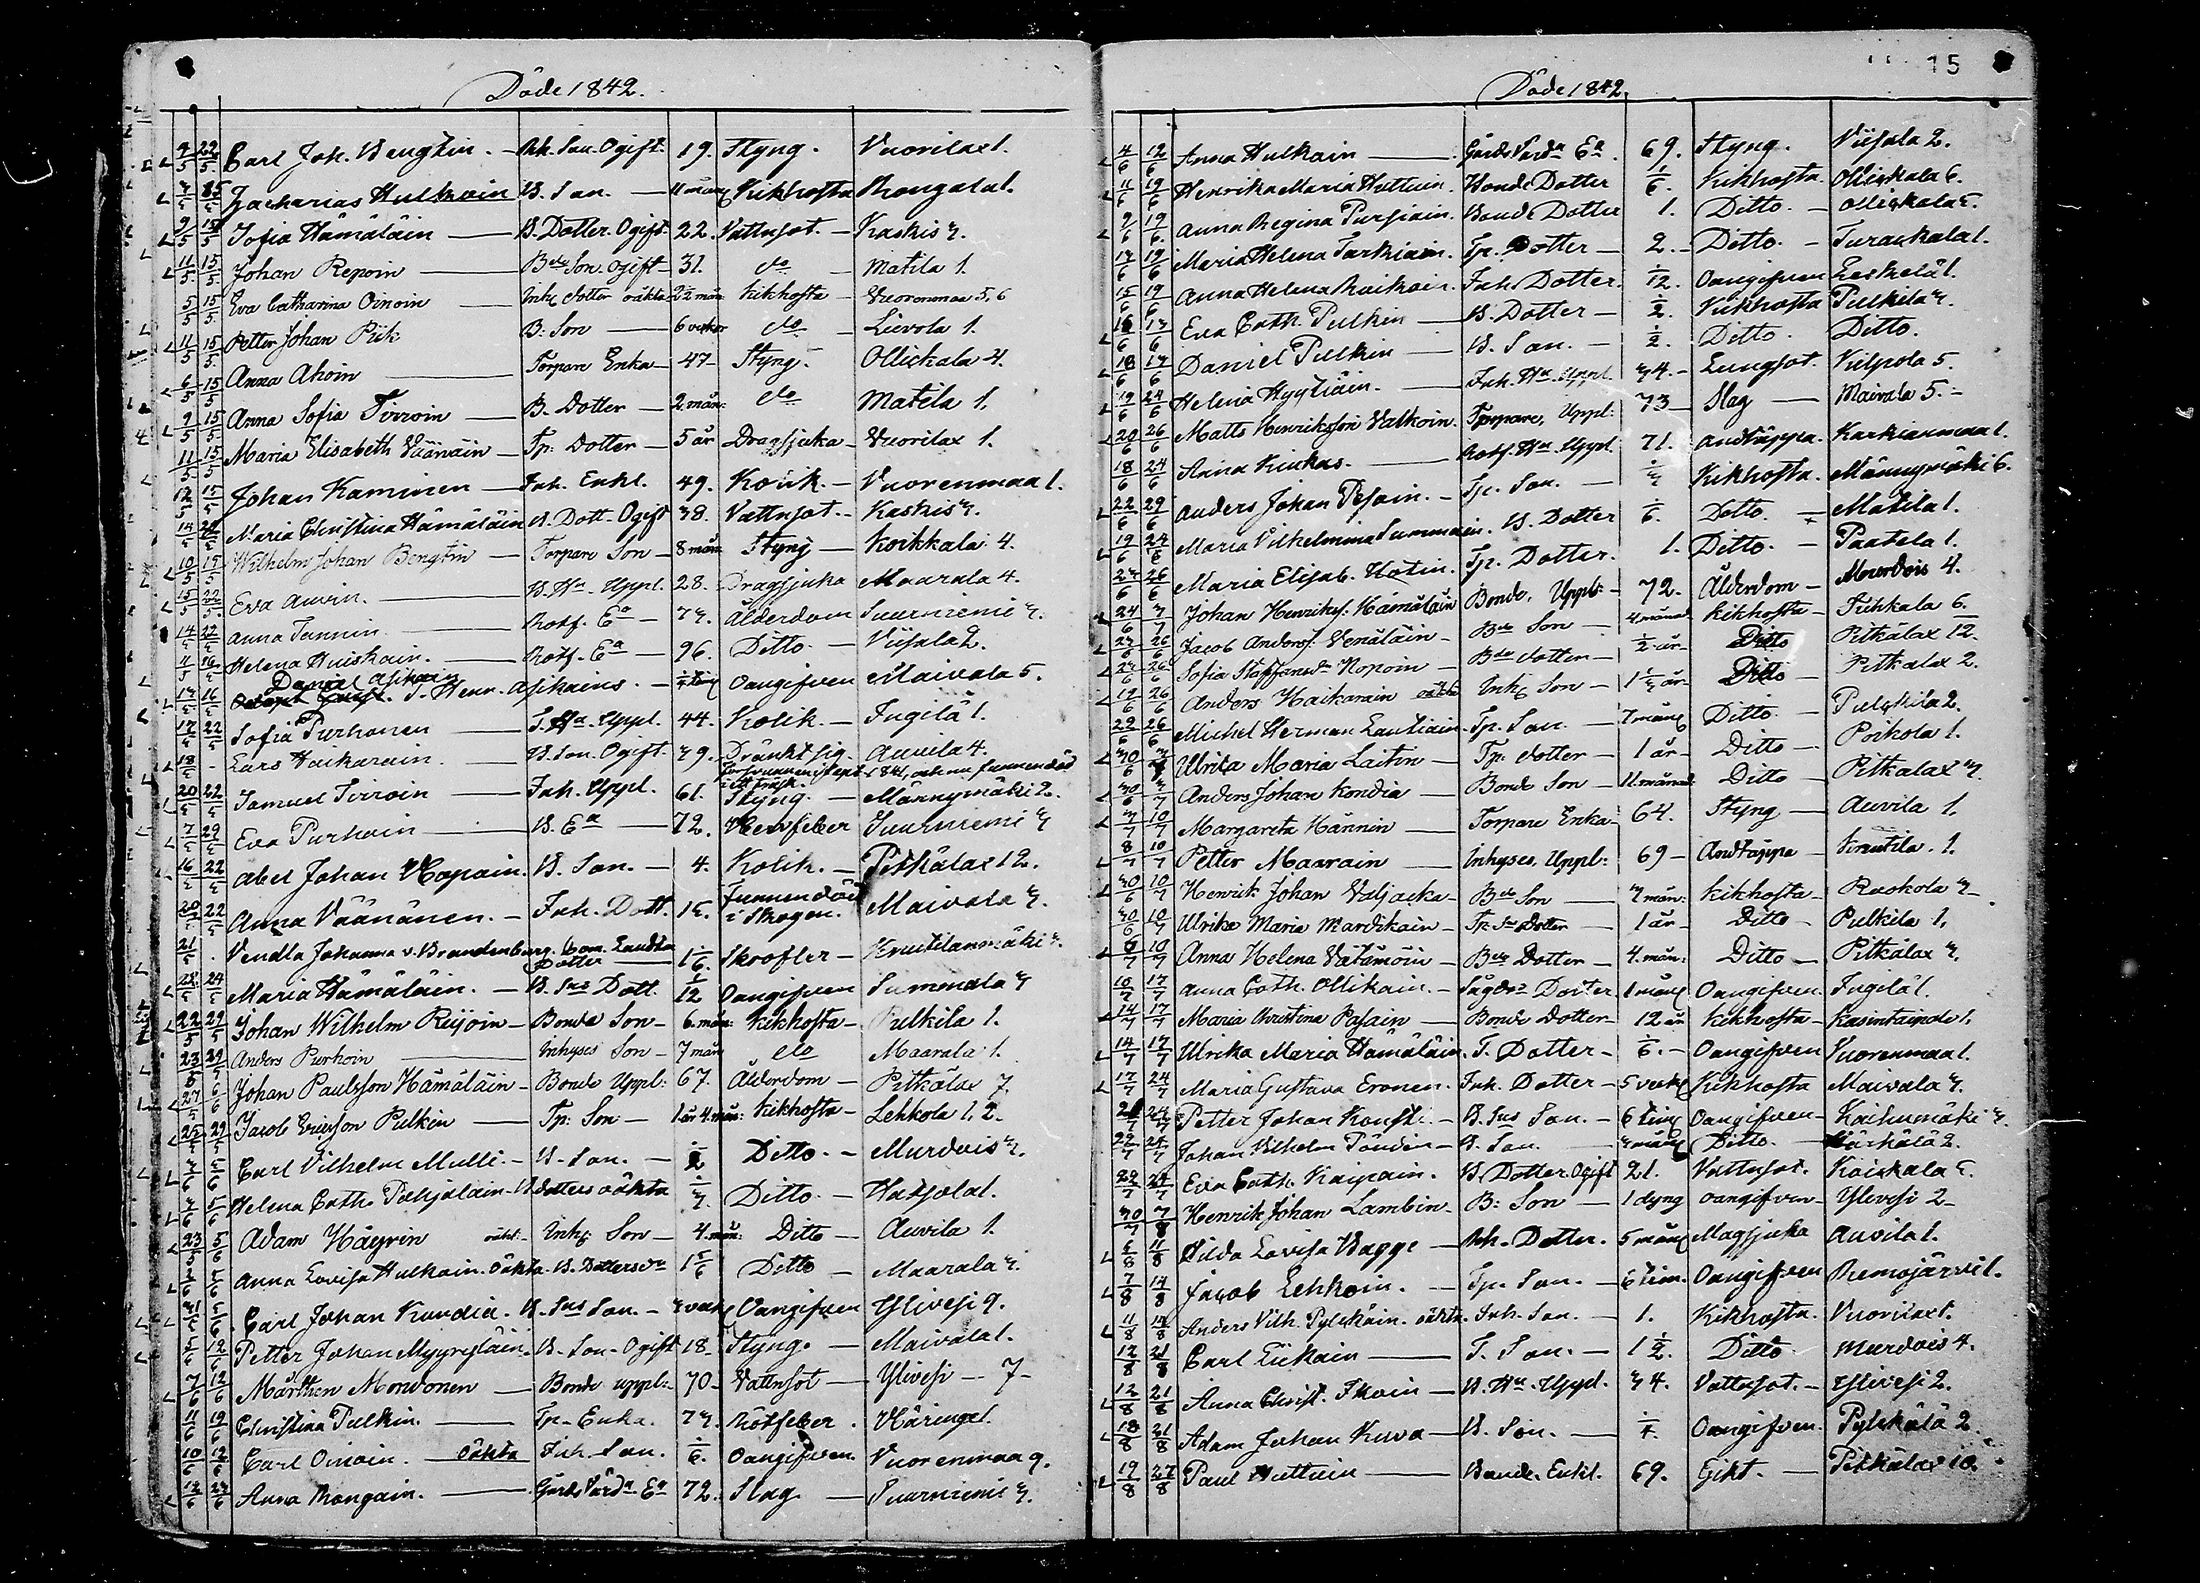 Döde 1842.
9/5 22/5 Carl Joh. Bengtin. Inh. Son. Ogift. 19. Styng. Vuorilax 1.
Zacharias Hulkoin B. Son. 11 mån Kikhosta Rongala 1.
9/5 15/5 Sofia Hämäläin B. Dotter. Ogift. 22. Vattusot. Kaskis 3.
11/5 15/5 Johan Repoin Bde Son. Ogift 31. do Matila 1.
5/5 15/5 Eva Catharina Oinoin Inhs dotter oäkta 2½ mån. kikhosta Vuorenmaa 5, 6
11/5 15/5 Petter Johan Piik B: Son 6 veckor do Lievola 1.
6/5 15/5 Anna Ahoin Torpare Enka 47 Styng. Ollickala 4.
9/5 15/5 Anna Sofia Tirroin B. Dotter 2 mån: do Matila 1.
11/5 15/5 Maria Elisabeth Väänäin Tp: Dotter 5 år Dragsjuka Vuorilax 1.
12/5 15/5 Johan Kaminen Inh. Enkl. 49. Kolik Vuorenmaa 1.
Maria Christina Hämäläin B. Dott. Ogift 38. Vattusot. Kaskis 3.
10/5 15/5 Wilhelm Johan Bengtin Torpare Son 8 mån Styng Koikkala 4.
15/5 22/5 Eva Auvin. B. Hu. Uppl. 28. Dragsjuka Maarala 4.
14/5 22/5 Anna Tannin Rotf. Ea 73. Ålderdom Suurniemi 3.
Helena Huiskoin. Rotf. Ea 96. Ditto Viisala 2.
Daniel Asikain
T. Henr. Asikains. Oangifven Maivala 5.
17/5 22/5 Sofia Purhonen T. Hu. Uppl. 44. Kolik. Ingilä 1.
18/5 Lars Haikarain. B. Son. Ogift. 39. Dränkt sig. Auvila 4.
Försvunnen i Sept. 1841, och nu funnen död
i ett träsk.
20/5 22/5 Samuel Tirroin Inh. Uppl. 61. Styng. Männymäki 2.
7/5 29/5 Eva Purhoin B. Ea 72. Nervfeber Suurniemi 3
16/5 22/5 Abel Johan Hapain. B. Son. 4. Kolik. Pitkälax 12.
20/5 22/5 Anna Väänänen. Inh. Dott. 15. Funnen död
i Skogen. Maivala 3.
21/5 Vendla Johanna v. Brandenburg. Dotter 1 1/6. Skrofler Knutilanmäki 3.
22/5 24/5 Maria Hämäläin. B. Sus Dott. 1/12 Oangifven Summala 3
22/5 29/5 Johan Wilhelm Reijoin Bonde Son 6. mån: kikhosta Pulkila 1.
23/5 29/5 Anders Purhoin Inhyses Son 7 mån do Maarala 1.
27/5 6/6 Johan Paulsson Hämäläin Bonde Uppl: 67. Ålderdom Pitkälax 7.
25/5 29/5 Jacob Ericsson Pulkin Tp: Son 1 år 4. mån: kikhosta Lehkola 1, 2.
Carl Vilhelm Mulli. B. Son. ½ Ditto. Murdois 3.
Helena Cath. Pohjalain. B. dotters oäkta Ditto. Hatsola 1.
23/5 5/6 Adam Häyrin oäkt: Inhs Son 4. mån: Ditto Auvila 1.
Anna Lovisa Hulkoin. oäkta. B. Dotters dr 1 5/6 Ditto Maarala 3.
31/5 5/6 Carl Johan Kundia. B. Sus Son. 3 veck Oangifven Ylivesi 9.
12/6 Petter Johan Myyryläin. B. Son. Ogift 18 Styng. Maivala 1.
7/6 12/6 Märthen Mononen Bonde uppl: 70 Vattusot Ylivesi 7
11/6 19/6 Christina Pulkin. Tp. Enka. 73. Rötfeber. Häringe 1.
10/6 12/6 Carl Oinoin. oäkta Inh. Son. 1/6. Oangifven. Vuorenmaa 9.
Anna Rongain. Gårds Värds Ea 72. Slag Suurniemi 3.
15
Döde 1842.
4/6 12/6 Anna Hulkoin Gårds Värds Ea. 69. Styng. Viisala 2.
11/6 19/6 Henrika Maria Huttuin. Bonde Dotter 1/6. Kikhosta. Ollickala 6.
9/6 19/6 Anna Regina Pursiain. Bonde Dotter 1. Ditto. Ollickala 5.
17/6 19/6 Maria Helena Tarkiain. Tp. Dotter 2. Ditto. Turackala 1.
15/6 19/6 Anna Helena Raikoin. Inh. Dotter. 1/12. Oangifven Leskelä 1.
Eva Cath. Pulkin B. Dotter ½. Kikhosta Pulkila 3.
Daniel Pulkin B. Son. ½. Ditto. Ditto.
19/6 24/6 Helena Hyytiäin. Inh. Hu. Uppl. 34. Lungsot. Vilpola 5.
20/6 26/6 Matts Henriksson Valkoin. Torpare, Uppl: 73 Slag Maivala 5.
18/6 24/6 Anna Kiukas. Rotf. Hu. Uppl. 71. Andtäppa. Karkianmaa 1.
22/6 29/6 Anders Johan Pesoin. Tp. Son. Kikhosta. Männymäki 6.
19/6 24/6 Maria Vilhelmina Summain. B. Dotter 1/6. Ditto. Matila 1.
Maria Elisab. Hotin. Tp. Dotter. 1. Ditto. Paatela 1.
24/6 3/7 Johan Henrikss: Hämäläin Bonde, Uppl: 72. Ålderdom Murdois 4.
Jacob Anderss: Venäläin Bde Son 4 månad kikhosta Tuhkala 6.
Sofia Staffansdr Nopoin Bde dotter ½ år Ditto Pitkälax 12.
19/6 26/6 Anders Haikarain oäkta Inhs Son Ditto Pitkälax 2.
22/6 26/6 Michel Herman Lautiain Tp. Son 7 mång Ditto Pulckila 2.
Ulrika Maria Laitin Tp: dotter 1 år Ditto Poikola 1.
30/6 3/7 Anders Johan Kondia Bonde Son 11 månad Ditto Pitkälax 3.
3/7 10/7 Margareta Hännin Torpare Enka 64. Styng Auvila 1.
8/7 10/7 Petter Maarain Inhyses, Uppl: 69 Andtäppa Knutila. 1.
30/6 10/7 Henrik Johan Valjacka Bde Son 3 mån: kikhosta Raskola 3
30/6 10/7 Ulrika Maria Mardikain Tp: Ss Dotter 1 år Ditto Pulkila 1.
6/7 10/7 Anna Helena Vätämöin Bde Dotter 4. mån: Ditto Pitkälax 3.
10/7 17/7 Anna Cath. Ollikain. Dotter. 1 mång Oangifven Ingilä 1.
14/7 17/7 Maria Christina Pasain Bonde Dotter 12 år kikhosta Kasintaipale 1.
14/7 17/7 Ulrika Maria Hämäläin. T. Dotter 1/6. Oangifven Vuorenmaa 1.
17/7 24/7 Maria Gustava Eronen. Inh. Dotter 5 veckg Kikhosta Maivala 3.
Petter Johan Konsti. B. Sus Son. 6 timg Oangifven Kaihumäki 3.
22/7 24/7 Johan Vilhelm Pöndin B. Son. 3 mång Ditto. 2.
Eva Cath. Kaipain. B. Dotter. Ogift 21. Vattusot. Koickala 5.
30/7 7/8 Henrik Johan Lambin B: Son 1 dygn oangifven Ylivesi 2
Hilda Lovisa Bagge Inh. Dotter. 5 mång Magsjuka Auvila 1.
7/8 14/8 Jacob Lehkoin. Tp. Son. 6 tim. Oangifven Remojärvi 1.
11/8 14/8 Anders Vilh. Pylckäin. oäkta. Inh. Son. 1. Kikhosta. Vuorilax 1.
12/8 21/8 Carl Tiikain T. Son. 1 ½. Ditto. Murdois 4.
12/8 21/8 Anna Christ. Ikoin B. Hu. Uppl. 34. Vattusot. Ylivesi 2.
18/8 21/8 Adam Johan Kuva B. Son. Oangifven. Pylckälä 2.
19/8 27/8 Paul Huttuin Bonde. Enkl. 69. Gikt. Pitkälax 10.